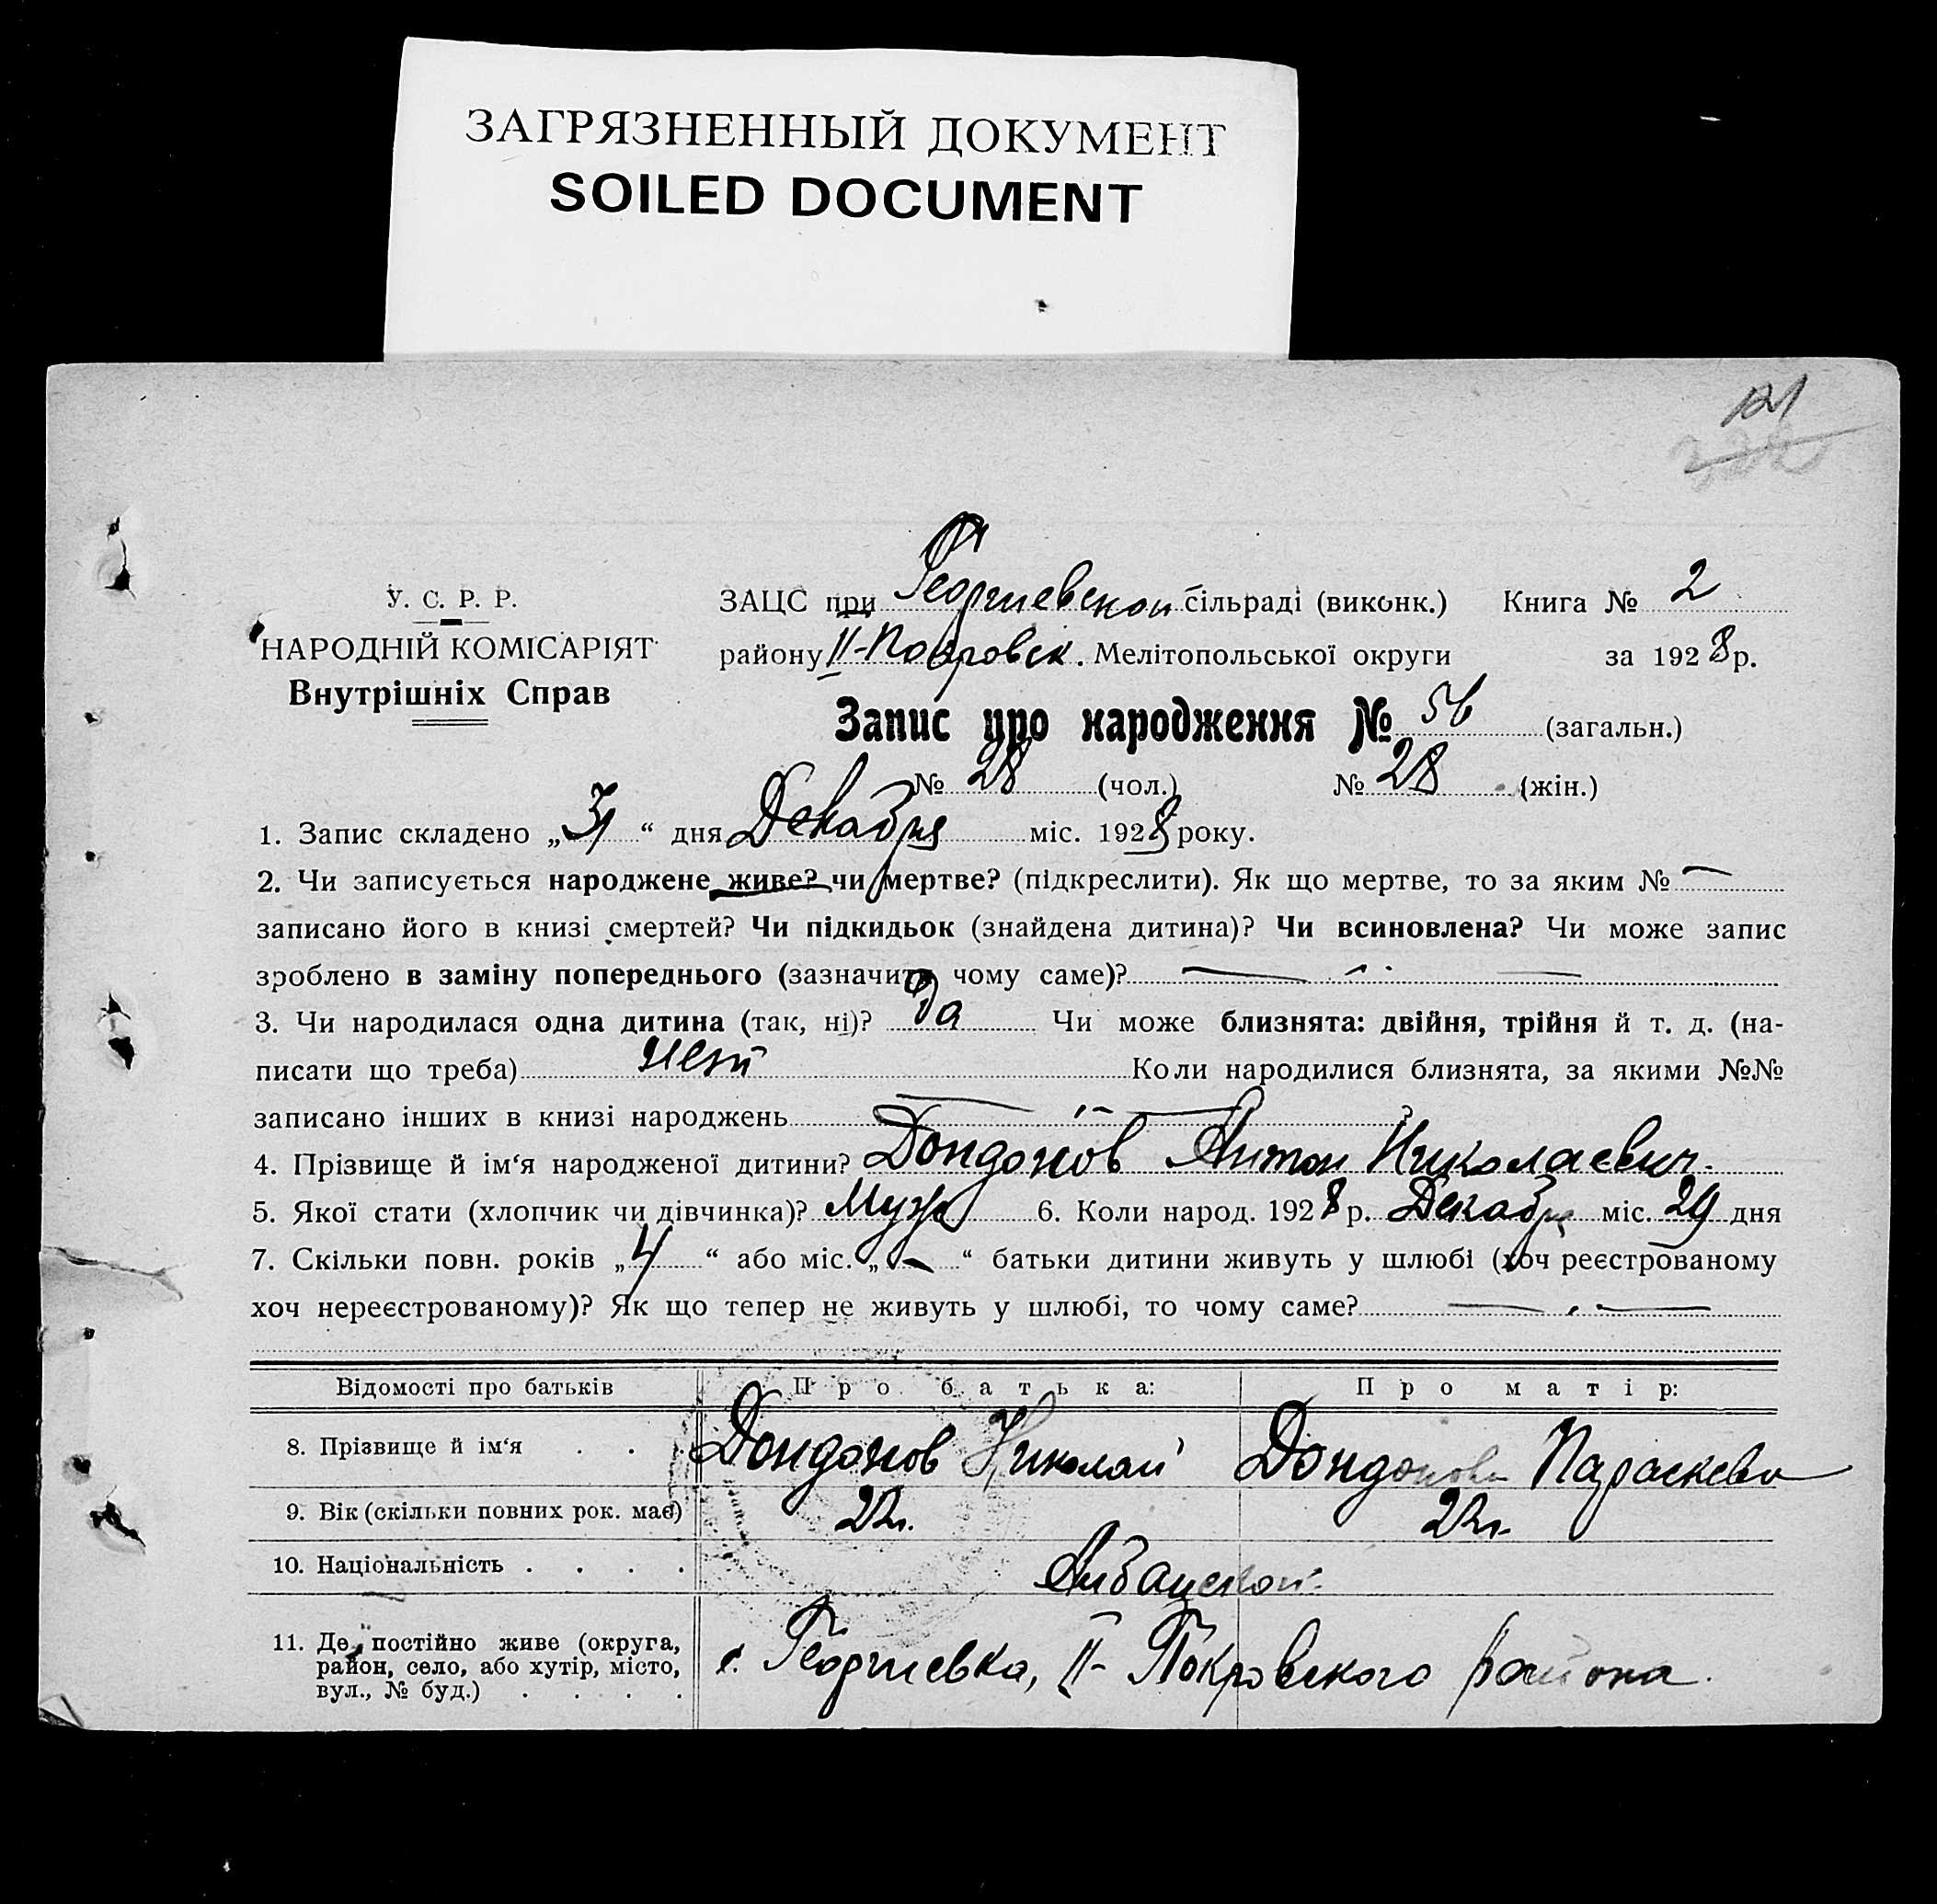 ЗАГРЯЗНЕННЫЙ ДОКУМЕНТ
SOILED DOCUMENT
У. С. Р. Р.
НАРОДНІЙ КОМІСАРІЯТ
Внутрішніх Справ
ЗАЦС при Георгиевской сільраді (виконк.) Книга № 2
району II-Покровск. Мелітопольської округи за 1928 р.
Запис про народження № 56 (загальн.)
№ 28 (чол.) № 28 (жін.)
1. Запис складено „31“ дня Декабря міс. 1928 року.
2. Чи записується народжене живе? чи мертве? (підкреслити). Як що мертве, то за яким № —
записано його в книзі смертей? Чи підкидьок (знайдена дитина)? Чи всиновлена? Чи може запис
зроблено в заміну попереднього (зазначить чому саме)? — „ —
3. Чи народилася одна дитина (так, ні)? Да Чи може близнята: двійня, трійня й т. д. (на-
писати що треба) нет Коли народилися близнята, за якими №№
записано інших в книзі народжень — „ — ?
4. Прізвище й ім‘я народженої дитини? Дондонов Антон Николаевич.
5. Якої стати (хлопчик чи дівчинка)? Муж 6. Коли народ. 1928 р. Декабря міс. 29 дня
7. Скільки повн. років „4“ або міс. „—“ батьки дитини живуть у шлюбі (хоч реєстрованому
хоч нереєстрованому)? Як що тепер не живуть у шлюбі, то чому саме? — „ —
Відомості про батьків Про батька: Про матір:
8. Прізвище й ім‘я . . . Дондонов Николай Дондонова Параскева
9. Вік (скільки повних рок. має) 22г. 22г.
10. Національність . . . . Албанской
11. Де постійно живе (округа,
район, село, або хутір, місто,
вул., № буд.) . . . .
с. Георгиевка, II-Покровского района.